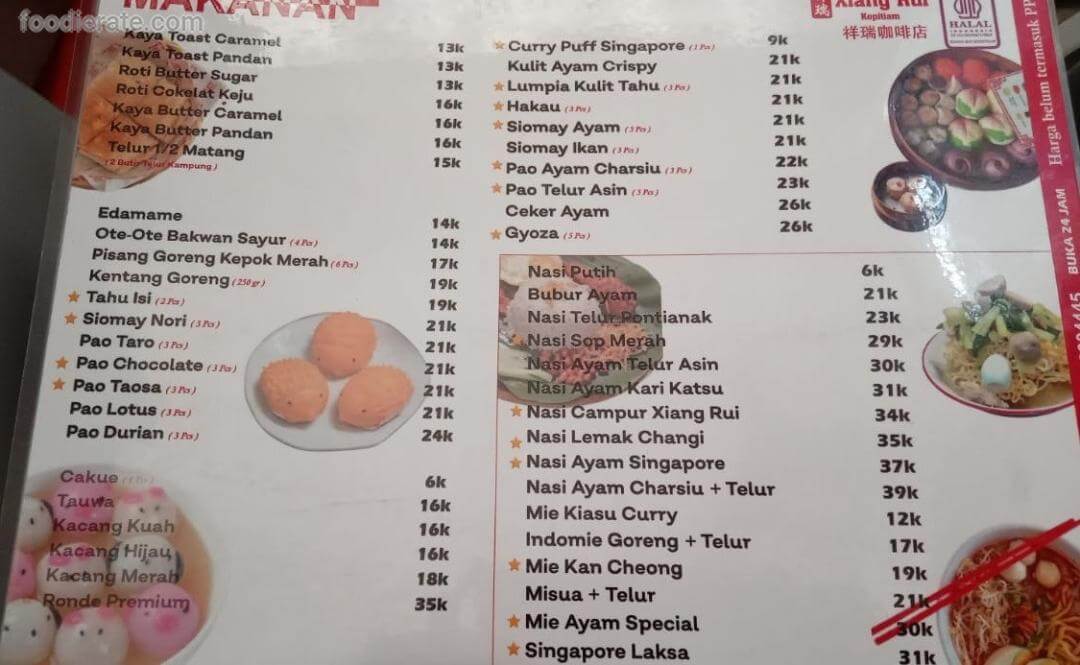 foodierate.com
MAKANAN
Kaya Toast Caramel 13k
Kaya Toast Pandan 13k
Roti Butter Sugar 13k
Roti Cokelat Keju 16k
Kaya Butter Caramel 16k
Kaya Butter Pandan 16k
Telur 1/2 Matang 15k
(2 Butir Telur Kampung)
Edamame 14k
Ote-Ote Bakwan Sayur (4 Pcs) 14k
Pisang Goreng Kepok Merah (6 Pcs) 17k
Kentang Goreng (250 gr) 19k
Tahu Isi (2 Pcs) 19k
Siomay Nori (3 Pcs) 21k
Pao Taro (3 Pcs) 21k
Pao Chocolate (3 Pcs) 21k
Pao Taosa (3 Pcs) 21k
Pao Lotus (3 Pcs) 21k
Pao Durian (3 Pcs) 24k
Cakue 6k
Tauwa 16k
Kacang Kuah 16k
Kacang Hijau 16k
Kacang Merah 18k
Ronde Premium 35k
Curry Puff Singapore (1 Pcs) 9k
Kulit Ayam Crispy 21k
Lumpia Kulit Tahu (3 Pcs) 21k
Hakau (3 Pcs) 21k
Siomay Ayam (3 Pcs) 21k
Siomay Ikan (3 Pcs) 21k
Pao Ayam Charsiu (3 Pcs) 22k
Pao Telur Asin (3 Pcs) 23k
Ceker Ayam 26k
Gyoza (5 Pcs) 26k
Nasi Putih 6k
Bubur Ayam 21k
Nasi Telur Pontianak 23k
Nasi Sop Merah 29k
Nasi Ayam Telur Asin 30k
Nasi Ayam Kari Katsu 31k
Nasi Campur Xiang Rui 34k
Nasi Lemak Changi 35k
Nasi Ayam Singapore 37k
Nasi Ayam Charsiu + Telur 39k
Mie Kiasu Curry 12k
Indomie Goreng + Telur 17k
Mie Kan Cheong 19k
Misua + Telur 21k
Mie Ayam Special 30k
Singapore Laksa 31k
Xiang Rui
Kopitiam
祥瑞咖啡店
瑞
HALAL
INDONESIA
Harga belum termasuk PP
BUKA 24 JAM